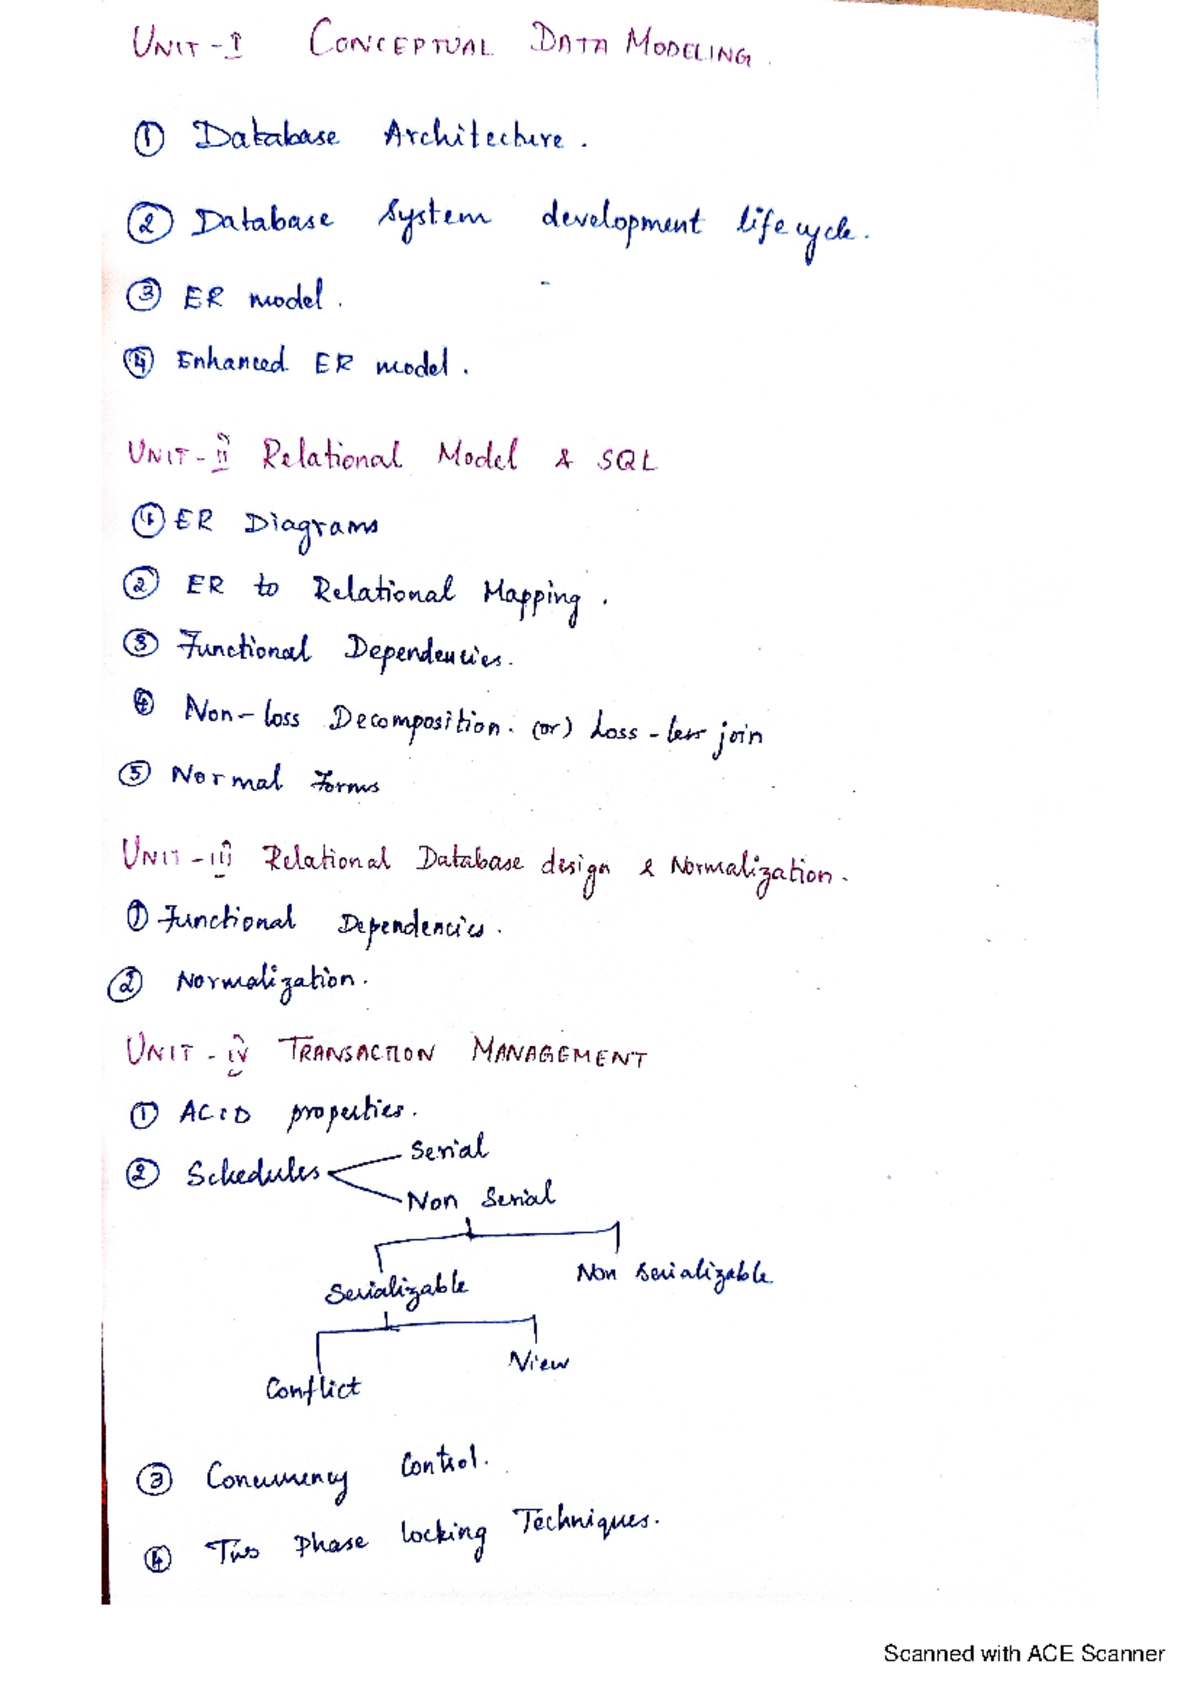 UNIT - I CONCEPTUAL DATA MODELING.
① Database Architecture.
② Database System development lifecycle.
③ ER model.
④ Enhanced ER model.
UNIT - II Relational Model & SQL
① ER Diagrams
② ER to Relational Mapping.
③ Functional Dependencies.
④ Non-loss Decomposition. (or) Loss-less join
⑤ Normal Forms
UNIT - III Relational Database design & Normalization.
① Functional Dependencies.
② Normalization.
UNIT - IV TRANSACTION MANAGEMENT
① ACID properties.
② Schedules
Serial
Non Serial
Serializable
Non serializable.
Conflict
View
③ Concurrency Control.
④ Two Phase locking Techniques.
Scanned with ACE Scanner